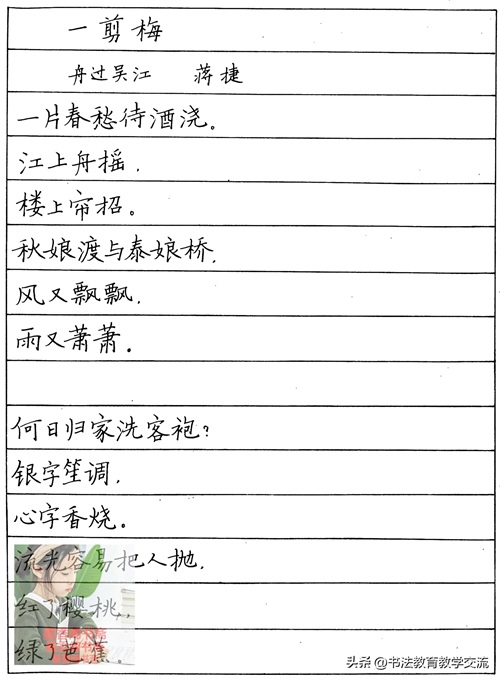 一剪梅
舟过吴江 蒋捷
一片春愁待酒浇。
江上舟摇,
楼上帘招。
秋娘渡与泰娘桥,
风又飘飘,
雨又萧萧。
何日归家洗客袍?
银字笙调,
心字香烧。
流光容易把人抛,
红了樱桃,
绿了芭蕉。
头条@书法教育教学交流